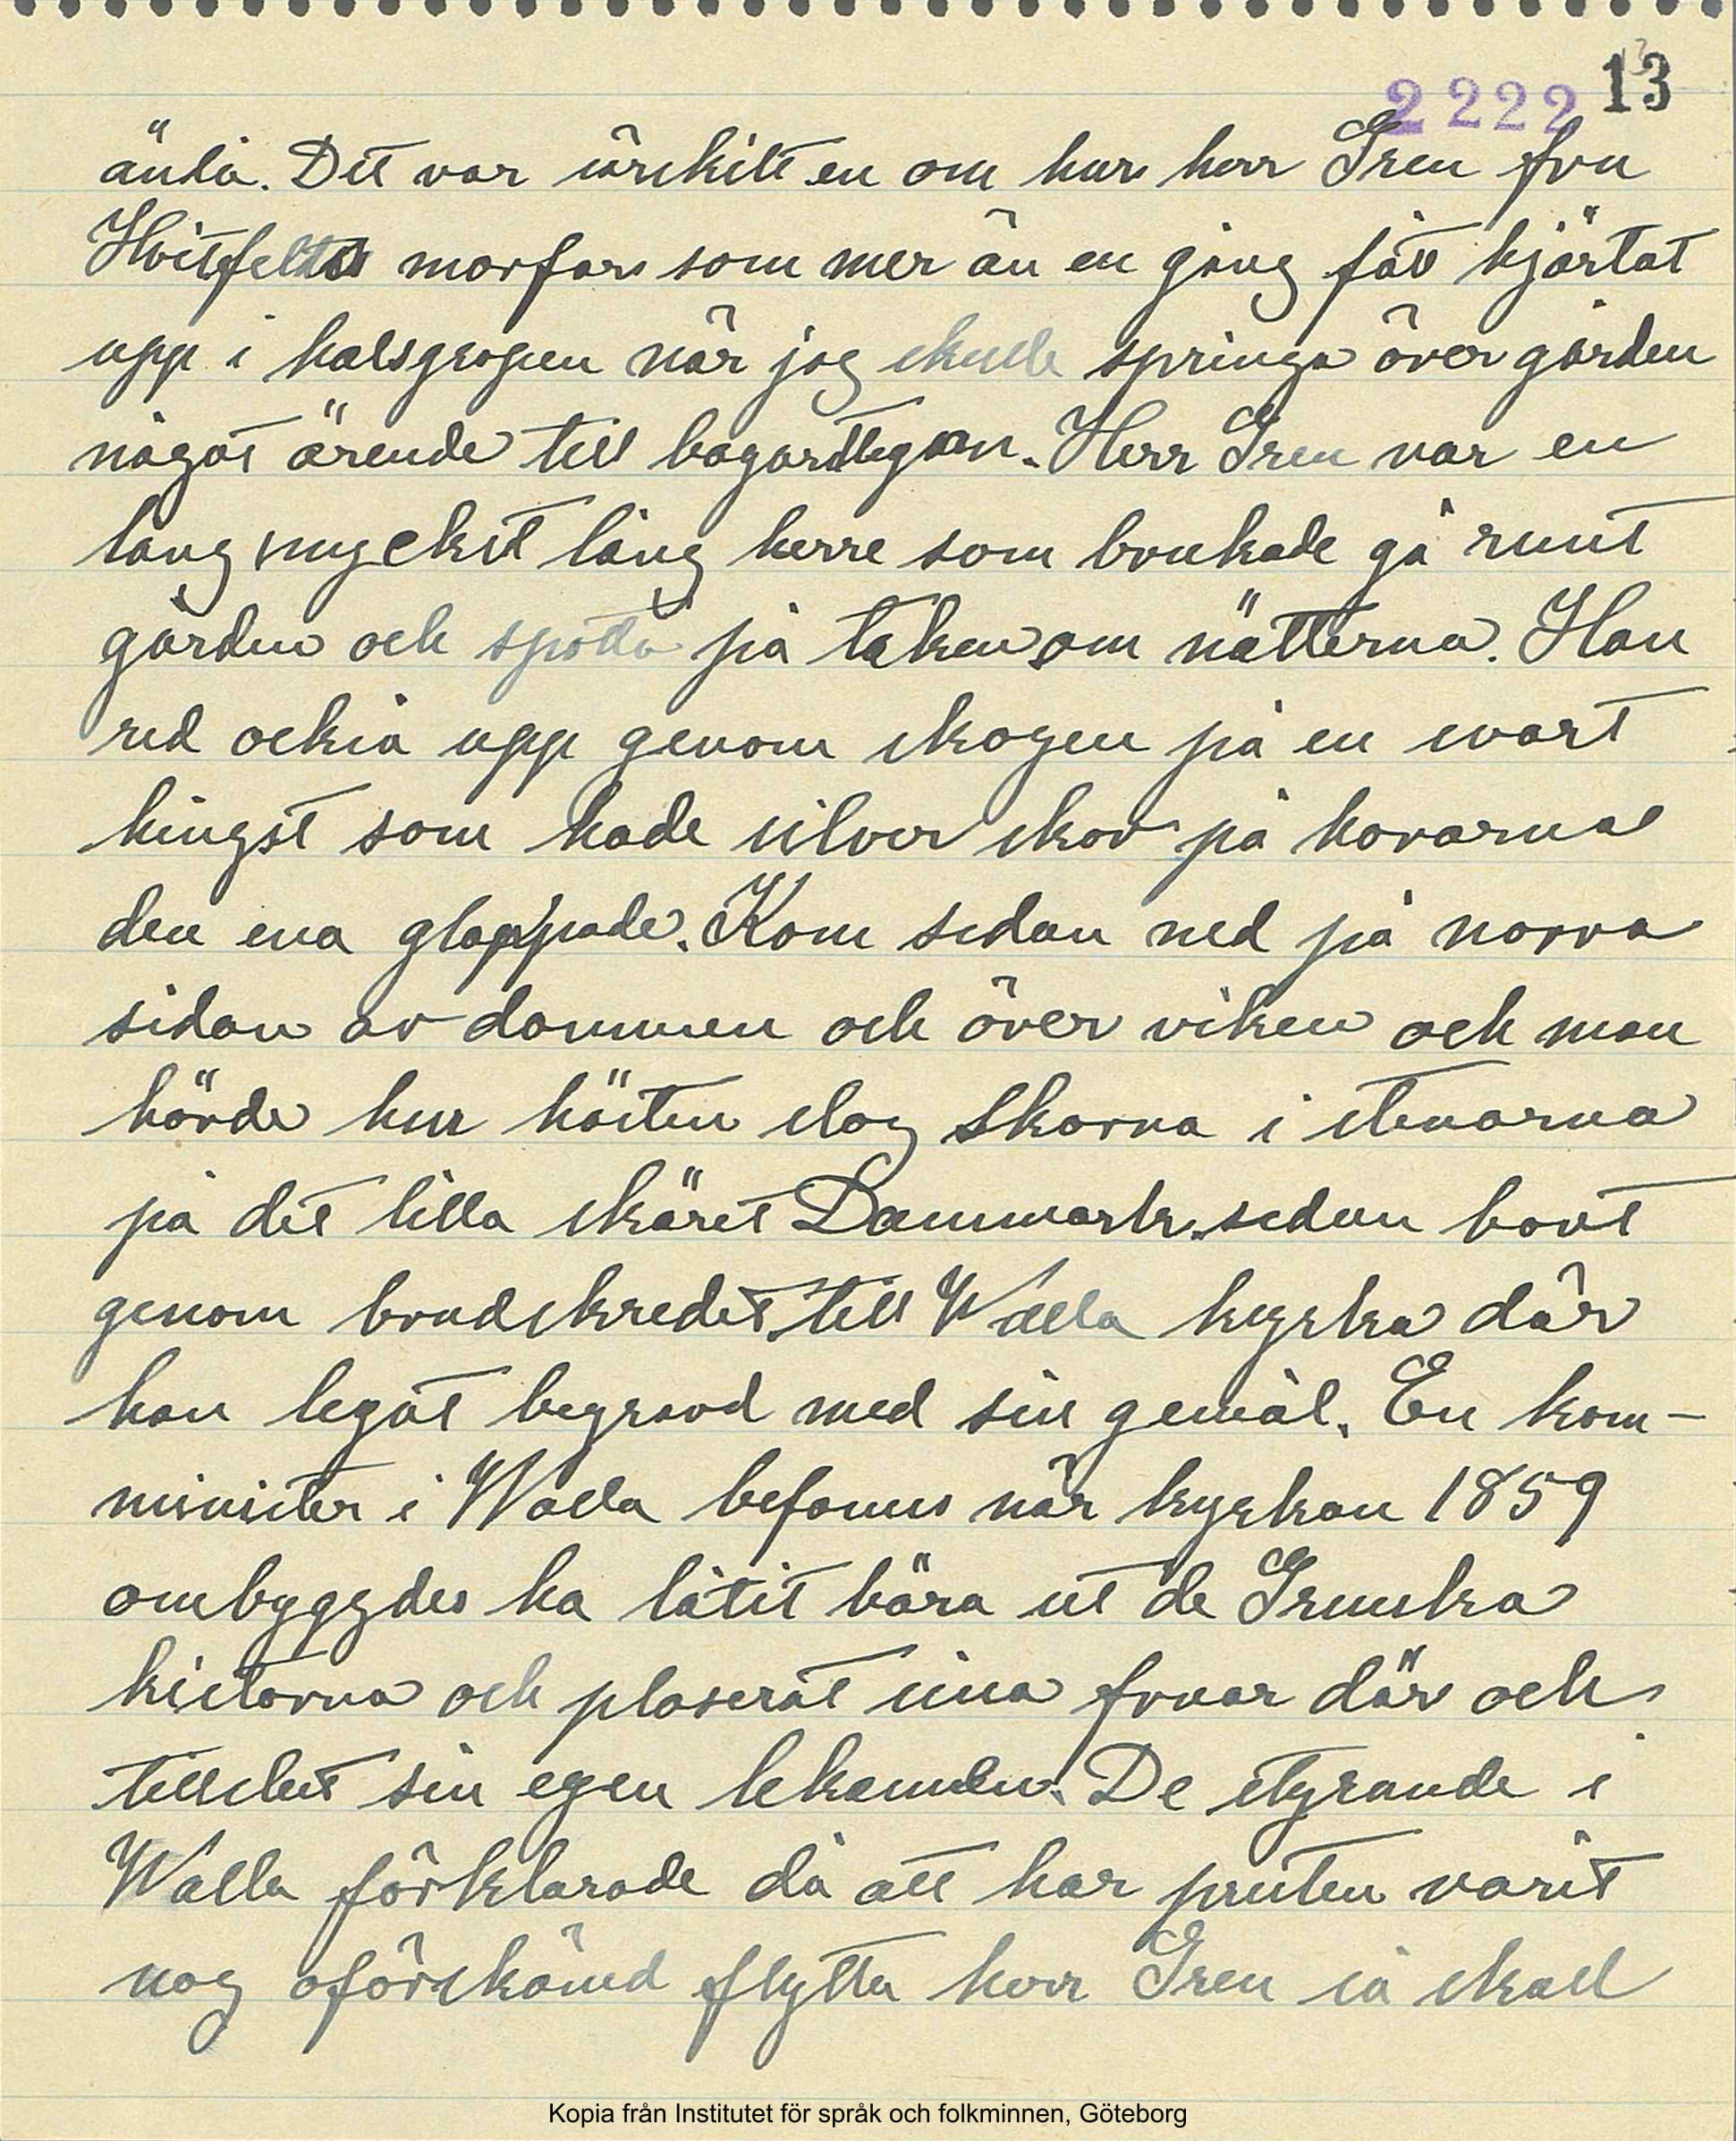 2222 13
ändå. Det var särskilt en om hur herr Gren fru
Hvitfeldts morfar som mer än en gång fått hjärtat
upp i halsgropen när jag skulle springa över gården
något ärende till bagarstugan. Herr Gren var en
lång mycket lång herre som brukade gå runt
gården och spotta på taken om nätterna. Han
red också upp genom skogen på en svart
hingst som hade silver skor på hovarna
den ena glappade. Kom sedan ned på norra
sidan av dammen och över viken och man
hörde hur hästen slog skorna i stenarna
på det lilla skäret Dammark. sedan bort
genom brudskredet till Walla kyrka där
han legat begravd med sin gemål. En kom-
minister i Walla befanns när kyrkan 1859
ombyggdes ha låtit bära ut de Grenska
kistorna och plaserat sina fruar där och
tillslut sin egen lekamen. De styrande i
Walla förklarade då att har prästen varit
nog oförskämd flytta herr Gren så skall
Kopia från Institutet för språk och folkminnen, Göteborg